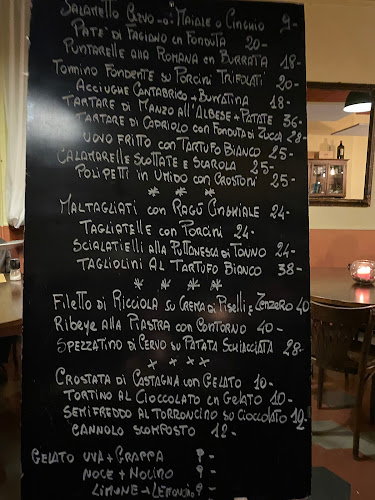 Salametto Cervo -o- Maiale o Cinghio 9-
Patè di Fagiano en Fonduta 20-
Puntarelle alla Romana en Burrata 18-
Tomino Fondente su Porcini Trifolati 20-
Acciughe Cantabrico + Burratina 18-
Tartare di Manzo all'Albese + Patate 36-
Tartare di Capriolo con Fonduta di Zucca 28-
Uovo Fritto con Tartufo Bianco 25-
Calamarelle Scottate e Scarola 25-
Polipetti in Umido con Crostoni 25-
* * *
Maltagliati con Ragù Cinghiale 24-
Tagliatelle con Porcini 24-
Scialatielli alla Puttonesca di Tonno 24-
Tagliolini al Tartufo Bianco 38-
* * * *
Filetto di Ricciola su Crema di Piselli e Zenzero 40
Ribeye alla Piastra con Contorno 40-
Spezzatino di Cervo su Patata Schiacciata 28-
* * * *
Crostata di Castagna con Gelato 10-
Tortino al Cioccolato en Gelato 10-
Semifreddo al Torroncino su Cioccolato
Cannolo Scomposto 12-
Gelato Uva + Grappa 9-
Noce + Nocino 9-
Limone + Lemoncino 9-